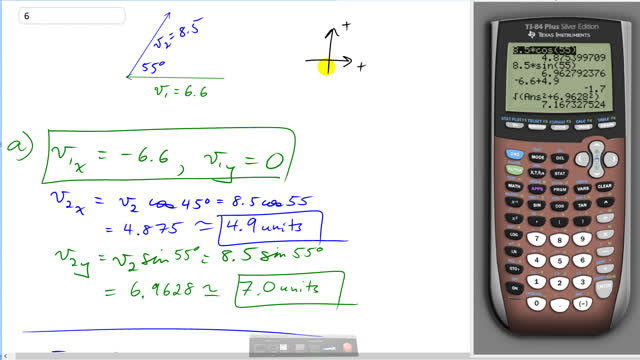 6
v₂ = 8.5
55°
v₁ = 6.6
+
+
a)
v₁ₓ = -6.6, v₁y = 0
v₂ₓ = v₂ cos 45° = 8.5 cos 55
= 4.875 ≃ 4.9 units
v₂y = v₂ sin 55° = 8.5 sin 55°
= 6.9628 ≃ 7.0 units
TI-84 Plus Silver Edition
TEXAS INSTRUMENTS
8.5*cos(55)
4.875399709
8.5*sin(55)
6.962792376
-6.6+4.9
-1.7
√(Ans²+6.9628²)
7.167327524
STAT PLOT F1 TBLSET F2 FORMAT F3 CALC F4 TABLE F5
Y= WINDOW ZOOM TRACE GRAPH
2ND MODE DEL
ALPHA X,T,θ,n STAT
MATH APPS PRGM VARS CLEAR
x⁻¹ SIN COS TAN ^
x² , ( ) ÷
LOG 7 8 9 ×
LN 4 5 6 −
STO▸ 1 2 3 +
ON 0 . (-) ENTER